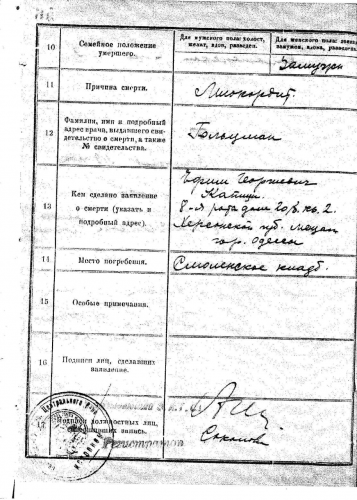 10
Семейное положение умершего.
Для мужского пола: холост, женат, вдов, разведен.
Для женского пола: замужем, вдова, разведена.
Замужн
11
Причина смерти.
Миокордит.
12
Фамилия, имя и подробный
адрес врача, выдавшего сви-
детельство о смерти, а также
№ свидетельства.
13
Кем сделано заявление
о смерти (указать и
подробный адрес).
Ефрим Георгиевич
Капици
7-я рота дом 20/3 кв. 2.
Херсонской губ. мещан
гор. Одессы
14
Место погребения.
Смоленское кладб.
15
Особые примечания.
16
Подписи лиц, сделавших
заявление.
17
Подписи должностных лиц,
запись.
Центрального
Регистратор
Соколова